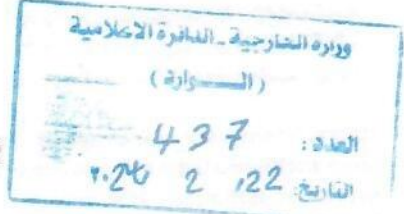 وزارة الخارجية - الدائرة الاعلامية
( الـــواردة )
العدد: 437
التاريخ: 22 2